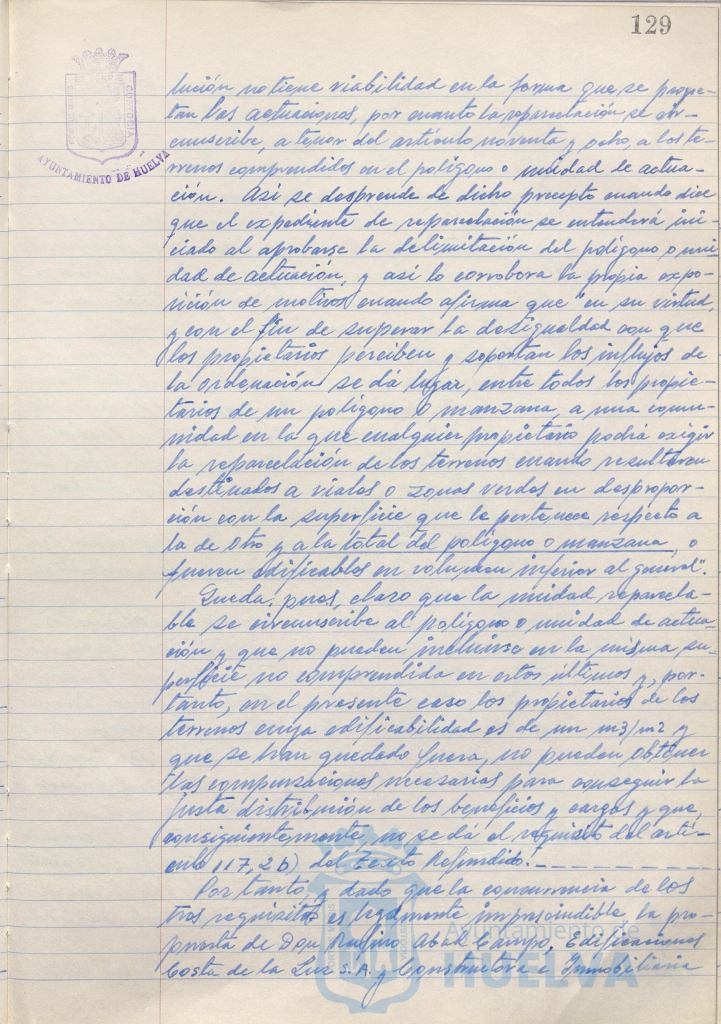 129
AYUNTAMIENTO DE HUELVA
lución no tiene viabilidad en la forma que se proyec-
tan las actuaciones, por cuanto la reparcelación se cir-
cunscribe, a tenor del artículo noventa y ocho, a los te-
rrenos comprendidos en el polígono o unidad de actua-
ción. Así se desprende de dicho precepto cuando dice
que el expediente de reparcelación se entenderá ini-
ciado al aprobarse la delimitación del polígono o uni-
dad de actuación, y así lo corrobora la propia expo-
sición de motivos cuando afirma que "en su virtud,
y con el fin de superar la desigualdad con que
los propietarios perciben y soportan los influjos de
la ordenación se dá lugar, entre todos los propie-
tarios de un polígono o manzana, a una comu-
nidad en la que cualquier propietario podrá exigir
la reparcelación de los terrenos cuando resultaren
destinados a viales o zonas verdes en despropor-
ción con la superficie que le pertenece respecto a
la de otro y a la total del polígono o manzana, o
fueren edificables en volumen inferior al general".
Queda, pues, claro que la unidad reparcela-
ble se circunscribe al polígono o unidad de actua-
ción y que no pueden incluirse en la misma su-
perficie no comprendida en estos últimos y, por-
tanto, en el presente caso los propietarios de los
terrenos cuya edificabilidad es de un m3/m2 y
que se han quedado fuera, no pueden obtener
las compensaciones necesarias para conseguir la
justa distribución de los beneficios y cargas y que,
consiguientemente, no se dá el requisito del artí-
culo 117,2 b) del Texto Refundido.
Por tanto, y dado que la concurrencia de los
tres requisitos es legalmente imprescindible, la pro-
puesta de Don Rufino Abad Campo, Edificaciones
Costa de la Luz S.A. y Constructora e Inmobiliaria
Ayuntamiento de
HUELVA